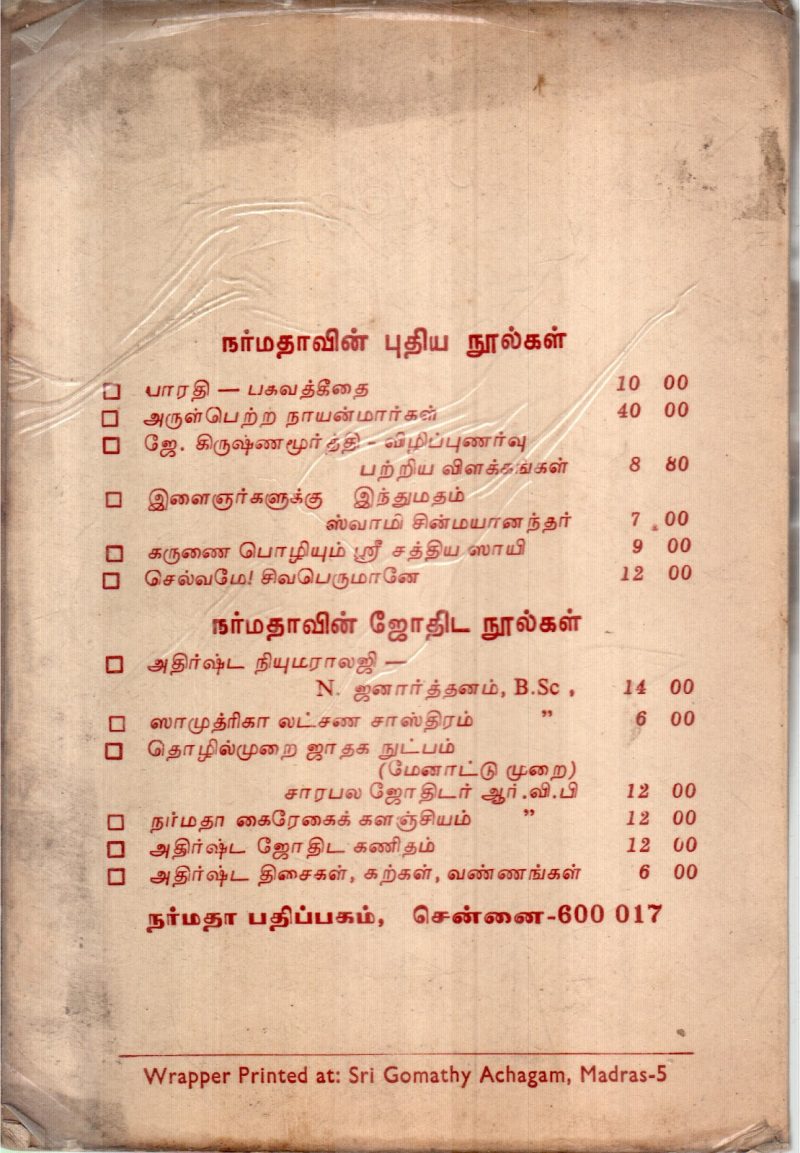 நர்மதாவின் புதிய நூல்கள்
☐ பாரதி — பகவத்கீதை 10 00
☐ அருள்பெற்ற நாயன்மார்கள் 40 00
☐ ஜே. கிருஷ்ணமூர்த்தி - விழிப்புணர்வு
பற்றிய விளக்கங்கள் 8 80
☐ இளைஞர்களுக்கு இந்துமதம்
ஸ்வாமி சின்மயானந்தர் 7 00
☐ கருணை பொழியும் ஸ்ரீ சத்திய ஸாயி 9 00
☐ செல்வமே! சிவபெருமானே 12 00
நர்மதாவின் ஜோதிட நூல்கள்
☐ அதிர்ஷ்ட நியுமராலஜி —
N. ஜனார்த்தனம், B.Sc , 14 00
☐ ஸாமுத்ரிகா லட்சண சாஸ்திரம் ” 6 00
☐ தொழில்முறை ஜாதக நுட்பம்
(மேனாட்டு முறை)
சாரபல ஜோதிடர் ஆர்.வி.பி 12 00
☐ நர்மதா கைரேகைக் களஞ்சியம் ” 12 00
☐ அதிர்ஷ்ட ஜோதிட கணிதம் 12 00
☐ அதிர்ஷ்ட திசைகள், கற்கள், வண்ணங்கள் 6 00
நர்மதா பதிப்பகம், சென்னை-600 017
Wrapper Printed at: Sri Gomathy Achagam, Madras-5